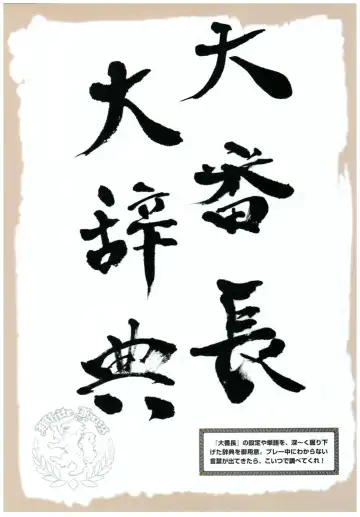 大番長
大辞典
『大番長』の設定や単語を、深〜く掘り下
げた辞典を御用意。プレー中にわからない
言葉が出てきたら、こいつで調べてくれ！